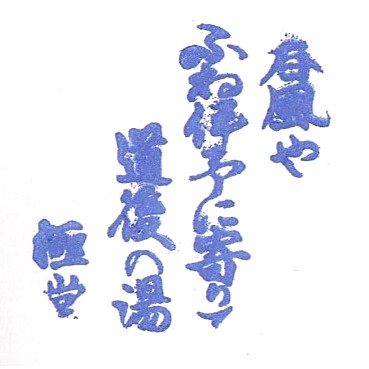 春風や
ふね伊予に寄りて
道後の湯
極堂